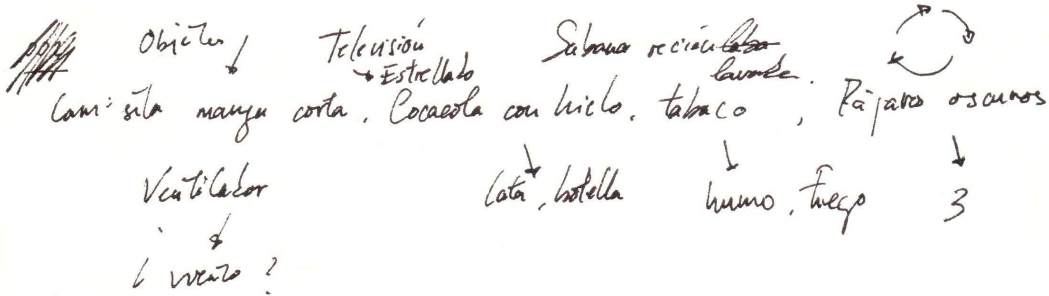 Objetos Televisión Sabana recién
Estrellado lavada.
Camisita manga corta, Cocacola con hielo, tabaco, Pájaros oscuros
Ventilador lata, botella humo, fuego 3
¿viento?